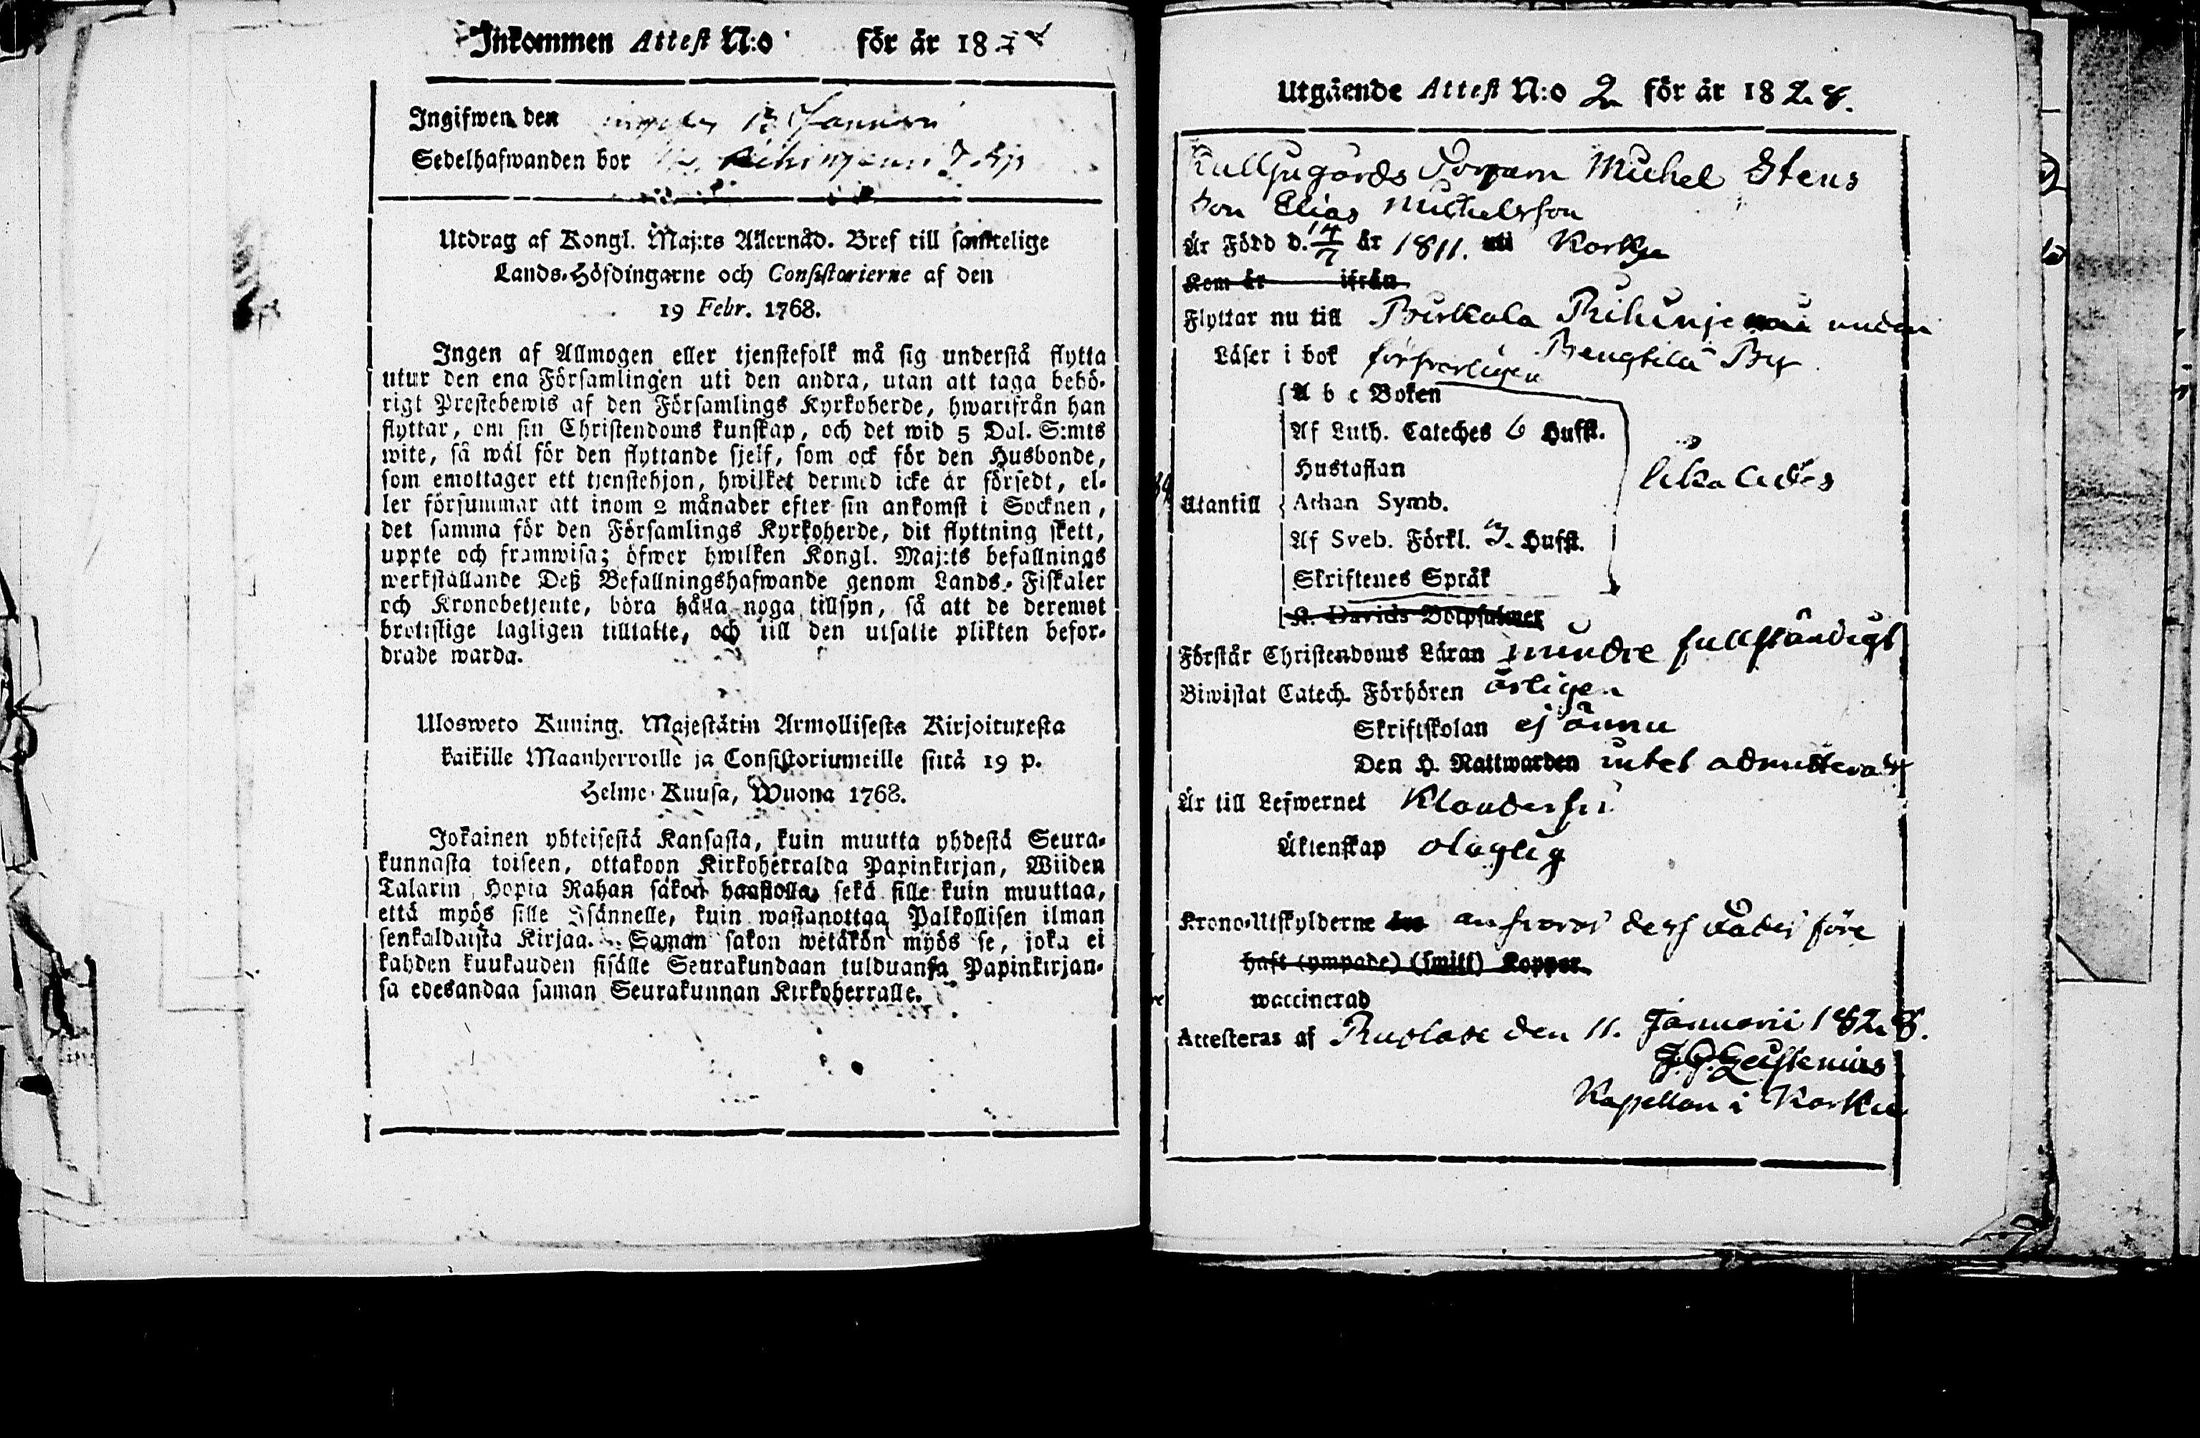 Inkommen Attest N:o för år 18
Ingifwen den
Sedelhafwanden bor
Utdrag af Kongl. Maj:ts Allernåd. Bref till samtelige
Lands-Höfdingarne och Consistorierne af den
19 Febr. 1768.
Ingen af Allmogen eller tjenstefolk må sig understå flytta
utur den ena Församlingen uti den andra, utan att taga behö-
rigt Prestebewis af den Församlings Kyrkoherde, hwarifrån han
flyttar, om sin Christendoms kunskap, och det wid 5 Dal. S:mts
wite, så wäl för den flyttande sjelf, som ock för den Husbonde,
som emottager ett tjenstehjon, hwilket dermed icke är försedt, el-
ler försummar att inom 2 månader efter sin ankomst i Socknen,
det samma för den Församlings Kyrkoherde, dit flyttning skett,
uppte och framwisa; öfwer hwilken Kongl. Maj:ts befallnings
werkställande Deß Befallningshafwande genom Lands-Fiskaler
och Kronobetjente, böra hålla noga tillsyn, så att de deremot
brottslige lagligen tilltalte, och till den utsatte plikten befor-
drade warda.
Ulosweto Kuning. Majestätin Armollisesta Kirjoituxesta
kaikille Maanherroille ja Consistoriumeille siitä 19 p.
Helme-Kuusa, Wuona 1768.
Jokainen yhteisestä Kansasta, kuin muutta yhdestä Seura-
kunnasta toiseen, ottakoon Kirkoherralda Papinkirjan, Wiiden
Talarin Hopia Rahan sakon haastolla, sekä sille kuin muuttaa,
että myös sille Isännelle, kuin wastanottaa Palkollisen ilman
senkaldaista Kirjaa. Saman sakon wetäkön myös se, joka ei
kahden kuukauden sisälle Seurakundaan tulduansa Papinkirjan-
sa edesandaa saman Seurakunnan Kirkoherralle.
Utgående Attest N:o 2 för år 1828.
Michel Stens
Son Elias Michelsson
Är Född d. 14/7 år 1811. uti Karkku
Kom år ifrån
Flyttar nu till Birkala under
Läser i bok försvarligen By
A b c Boken
Af Luth. Cateches 6 Hufst.
Hustaflan
likaledes
Utantill Athan Symb.
Af Sveb. Förkl. 3. Hufst.
Skriftenes Språk
K. Davids Botpsalmer
Förstår Christendoms Läran mindre fullständigt
Biwistat Catech. Förhören årligen
Skriftskolan ej ännu
Den H. Nattwarden intet admitterad
Är till Lefwernet Klanderfri
Äktenskap olaglig
Krono-Utskylderne ansvarar dess fader före
haft (ympade) (smitt) Koppor
waccinerad
Attesteras af den 11. Januarii 1828.
Kapellan i Karkku